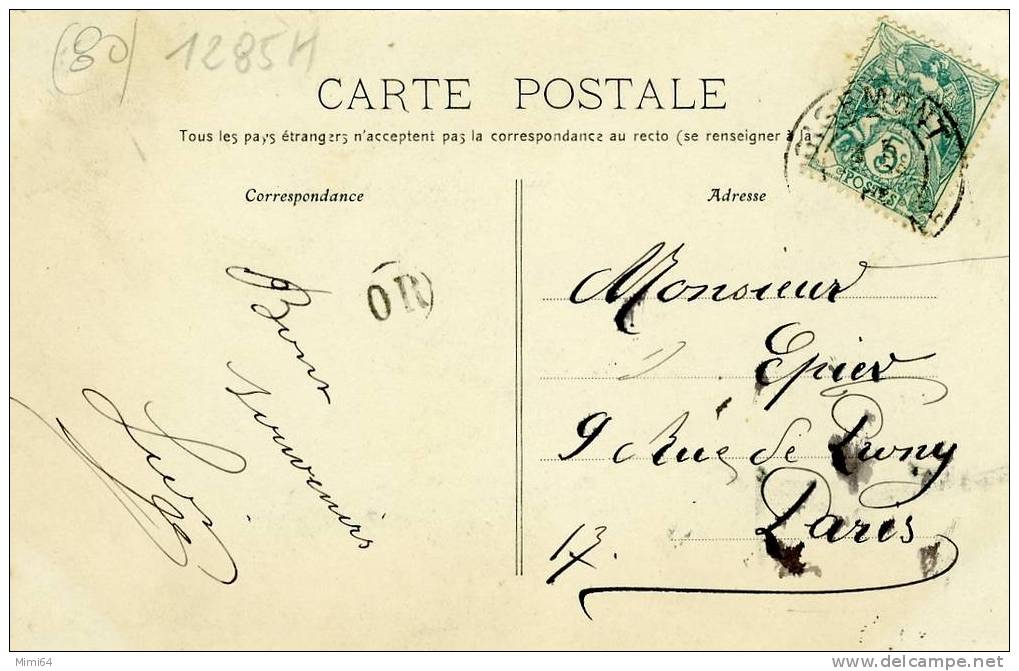 (80) 1285H
CARTE POSTALE
Tous les pays étrangers n'acceptent pas la correspondance au recto (se renseigner à la
Correspondance
Adresse
OISEMONT
5
POSTES
OR
Bons
souvenirs
Monsieur
Epier
9 Rue de Prony
Paris
17.
Mimi64
delcampe.net